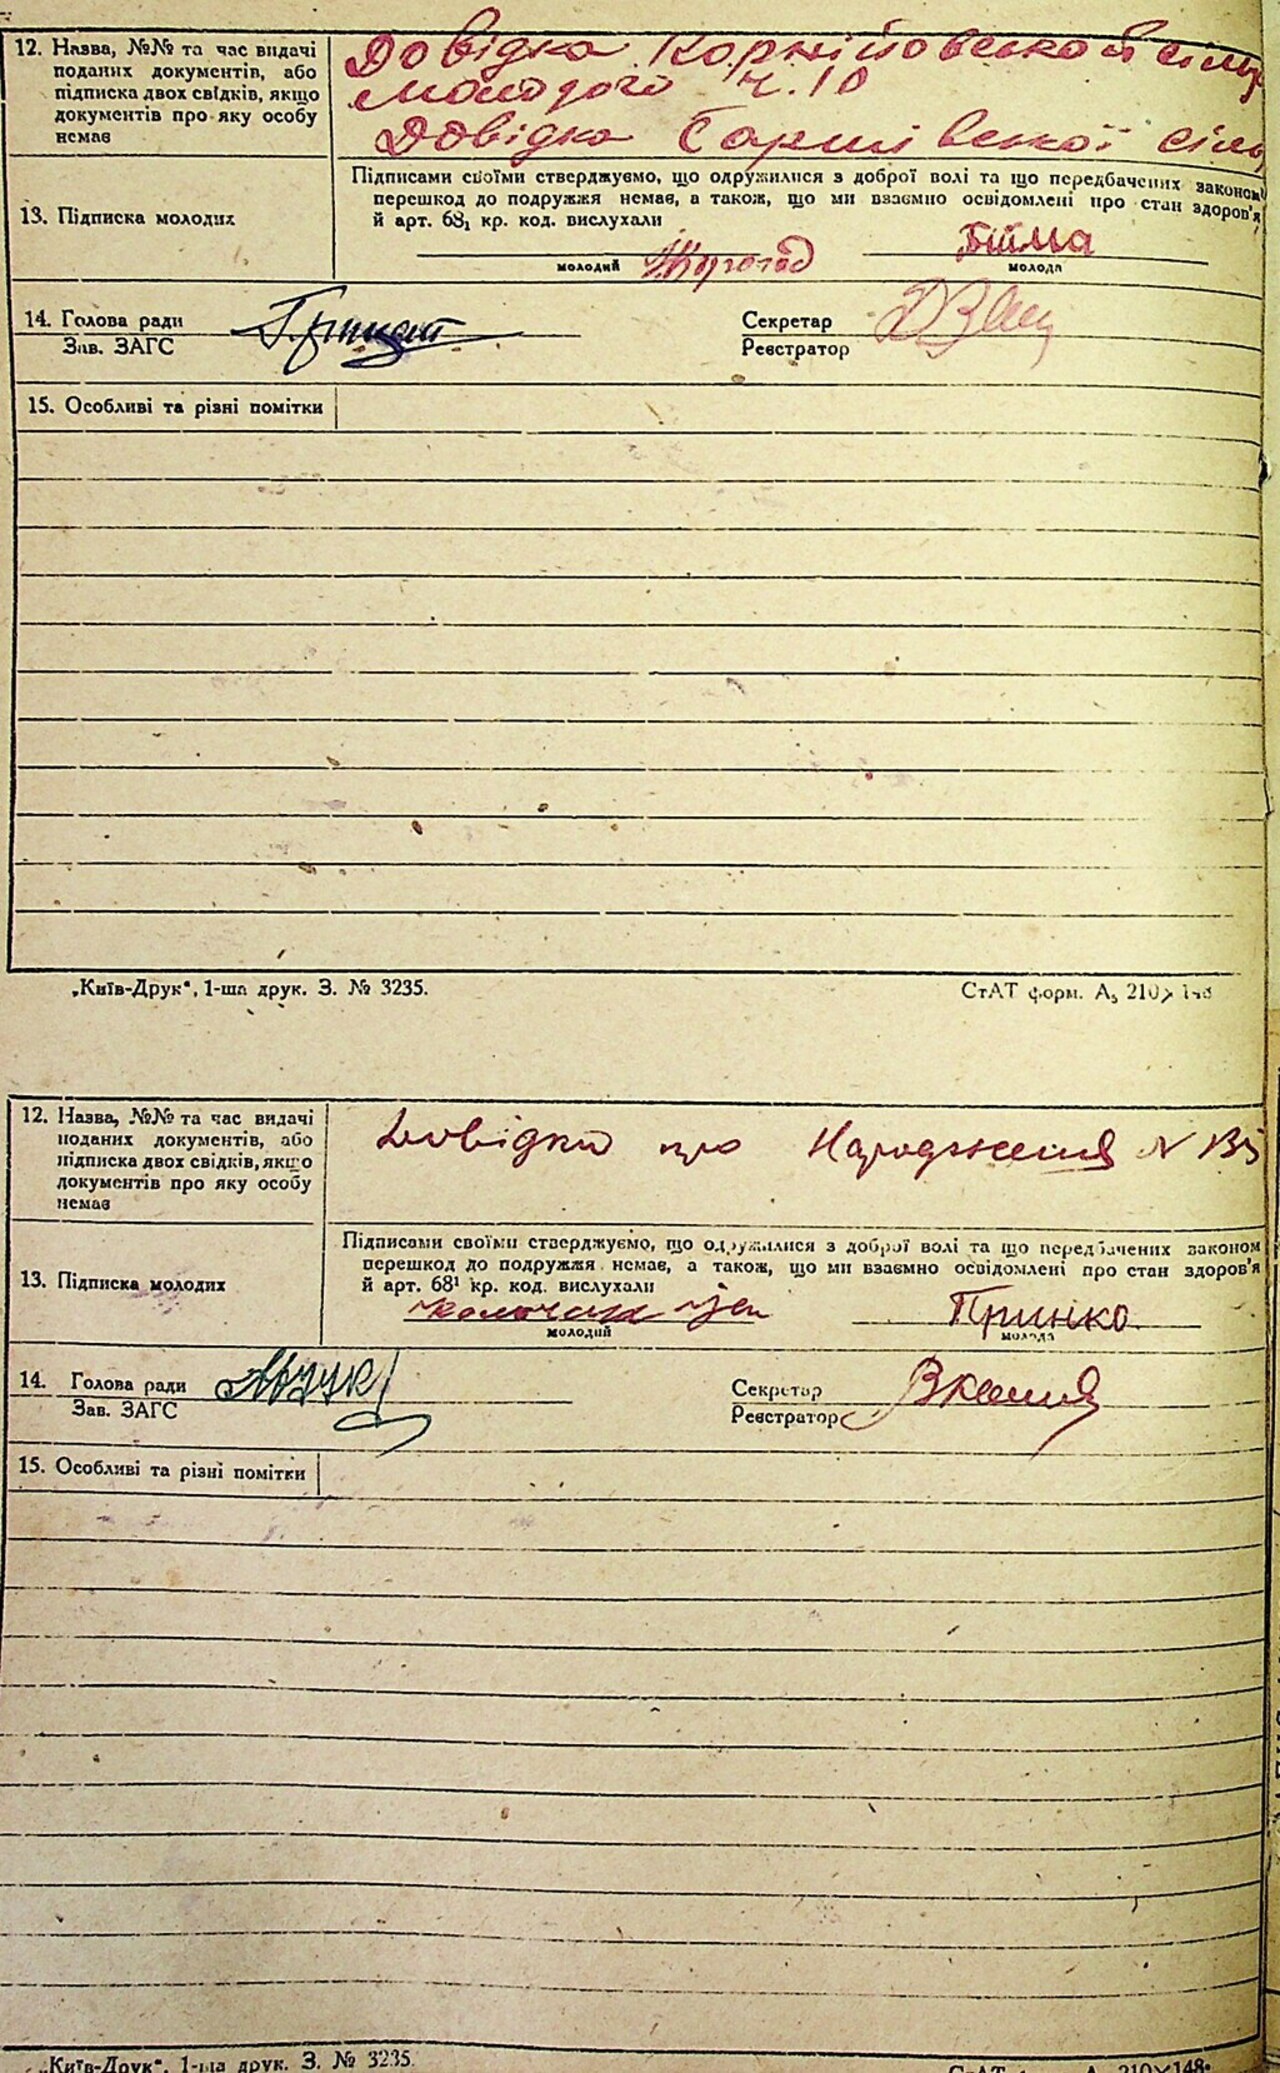 12. Назва, №№ та час видачі
поданих документів, або
підписка двох свідків, якщо
документів про яку особу
немає
Довідка Корнійовської сіль
молодого ч. 10
Довідка Гарші вської сіль
Підписами своїми стверджуємо, що одружилися з доброї волі та що передбачених законом
перешкод до подружжя немає, а також, що ми взаємно освідомлені про стан здоров'я
й арт. 68₁ кр. код. вислухали
13. Підписка молодих
молодий
Бійма
молода
14. Голова ради
Зав. ЗАГС
Секретар
Реєстратор
15. Особливі та різні помітки
„Київ-Друк“, 1-ша друк. З. № 3235.
СтАТ форм. А₅ 210×148
12. Назва, №№ та час видачі
поданих документів, або
підписка двох свідків, якщо
документів про яку особу
немає
Довідка про Народження N 135
Підписами своїми стверджуємо, що одружилися з доброї волі та що передбачених законом
перешкод до подружжя немає, а також, що ми взаємно освідомлені про стан здоров'я
й арт. 68¹ кр. код. вислухали
13. Підписка молодих
молодий
Принько
молода
14. Голова ради
Зав. ЗАГС
Секретар
Реєстратор
15. Особливі та різні помітки
„Київ-Друк“, 1-ша друк. З. № 3235.
210×148.